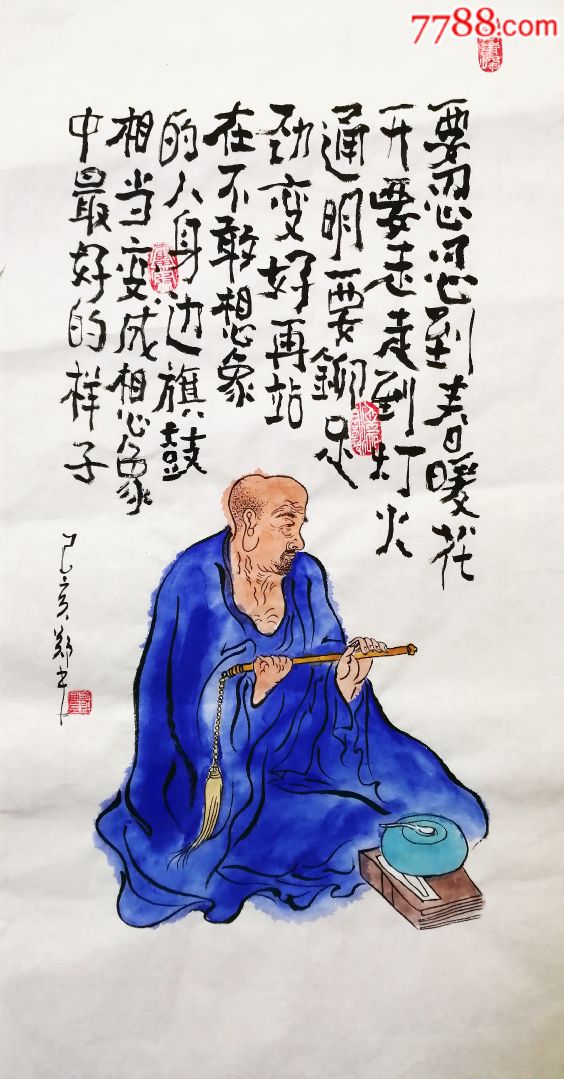 7788.com
要忍忍到春暖花
开要走走到灯火
通明要鉚足
劲变好再站
在不敢想象
的人身边旗鼓
相当变成想象
中最好的样子
己亥郑